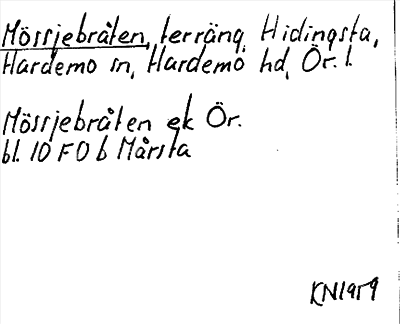 Mössjebråten, terräng, Hidingsta,
Hardemo sn, Hardemo hd, Ör. l.
Mössjebråten ek Ör.
bl. 10 F 0 b Mårsta
KN1959